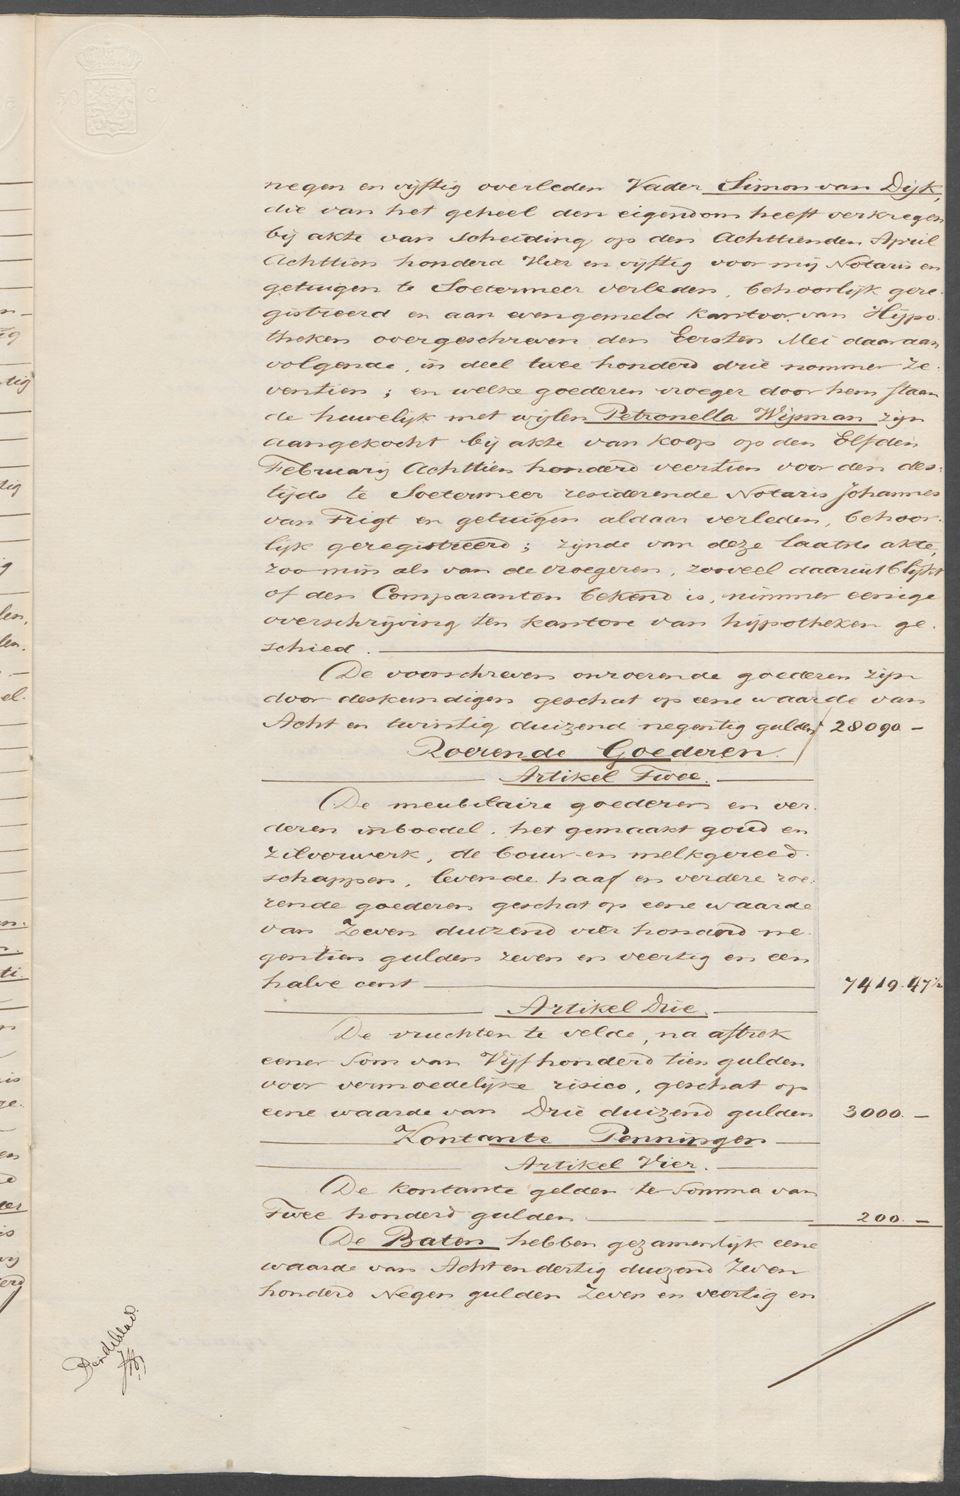 negen en vijftig overleden Vader Simon van Dijk,
die van het geheel den eigendom heeft verkregen
bij akte van scheiding op den Achttienden April
Achttien honderd Vier en vijftig voor mij Notaris en
getuigen te Soetermeer verleden, behoorlijk gere-
gistreerd en aan evengemeld kantoor van Hypo-
theken overgeschreven den Eersten Mei daaraan
volgende, in deel twee honderd drie nommer ze-
ventien; en welke goederen vroeger door hem staan
de huwelijk met wijlen Petronella Wijsman zijn
aangekocht bij akte van koop op den Elfden
Februarij Achttien honderd veertien voor den des-
tijds te Soetermeer resideerende Notaris Johannes
van Frigt en getuigen aldaar verleden, behoor-
lijk geregistreerd; zijnde van deze laatste akte,
zoo min als van de vroegeren, zooveel daaruit blijkt
of den Comparanten bekend is, nimmer eenige
overschrijving ten kantore van hijpotheken ge-
schied.
De voorschreven onroerende goederen zijn
door deskundigen geschat op eene waarde van
Acht en twintig duizend negentig gulden 28090 -
Roerende Goederen.
Artikel Twee.
De meubilaire goederen en ver-
deren inboedel, het gemaakt goud en
zilverwerk, de bouw- en melkgereed-
schappen, levende haaf en verdere roe-
rende goederen geschat op eene waarde
van Zeven duizend vier honderd ne-
gentien gulden zeven en veertig en een
halve cent 7419.47½
Artikel Drie.
De vruchten te velde, na aftrek
eener Som van Vijfhonderd tien gulden
voor vermoedelijke risico, geschat op
eene waarde van Drie duizend gulden 3000. -
Kontante Penningen
Artikel Vier.
De kontante gelden ter Somma van
Twee honderd gulden 200. -
De Baten hebben gezamenlijk eene
waarde van Acht en dertig duizend Zeven
honderd Negen gulden Zeven en veertig en
Derdeblad.